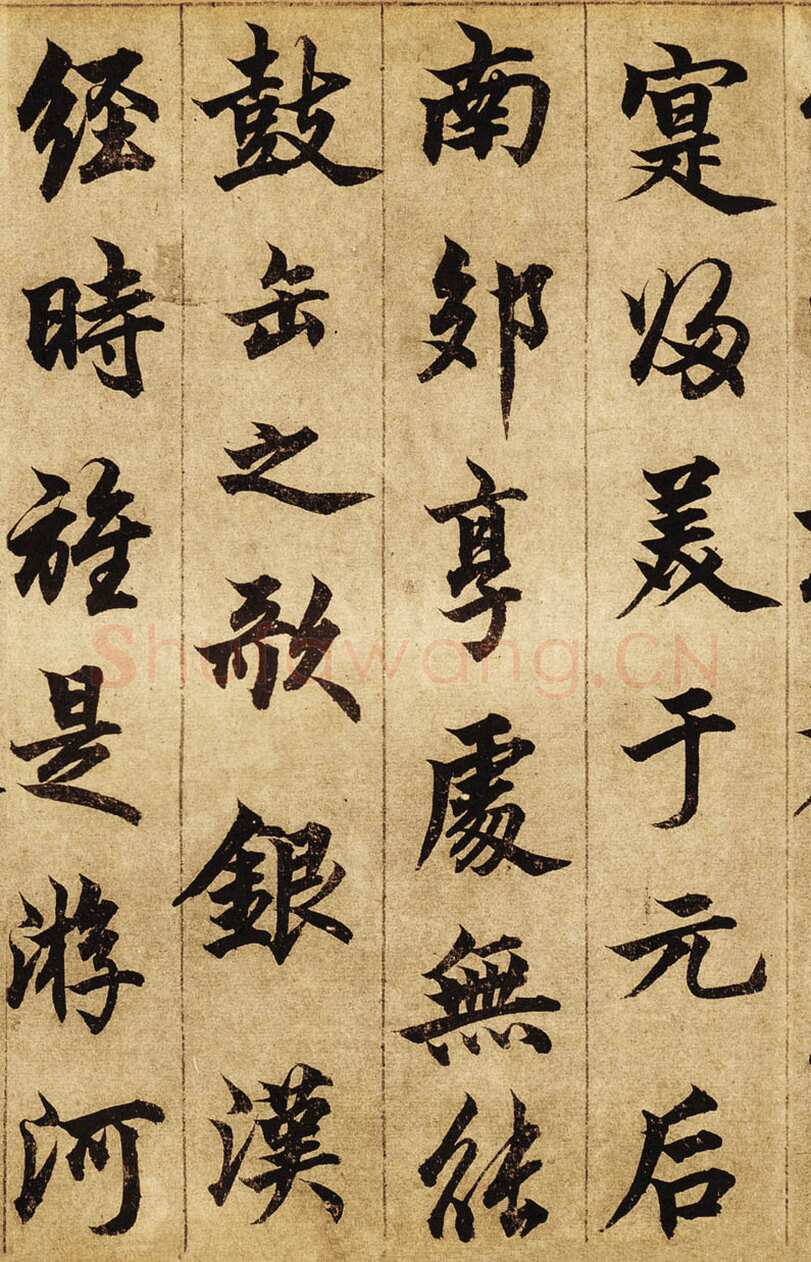 寔歸美于元后
南郊享處無能
鼓缶之歌銀漢
經時旌是游河
Shufawang.CN